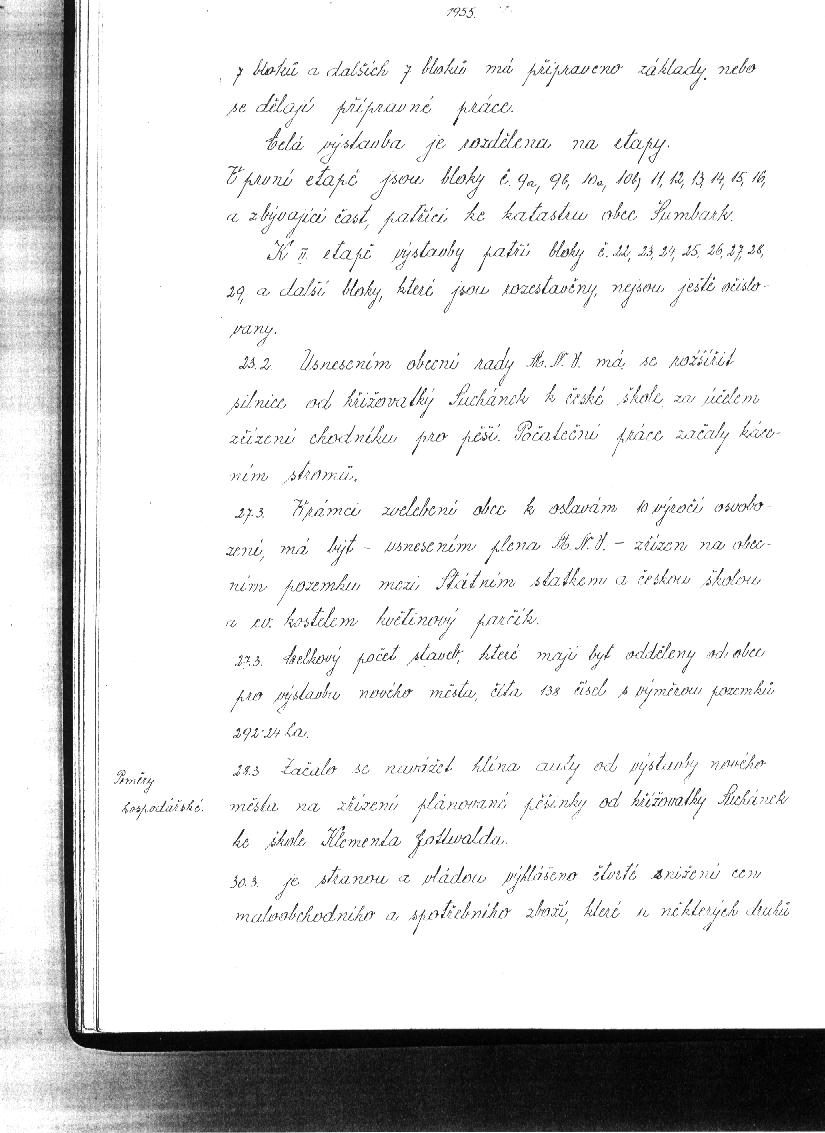 1955.
7 bloků a dalších 7 bloků má připraveno základy, nebo
se dělají přípravné práce.
Celá výstavba je rozdělena na etapy.
K první etapě jsou bloky č. 9a, 9b, 10a, 10b, 11, 12, 13, 14, 15, 16,
a zbývající část, patřící ke katastru obec Šumbark.
K II. etapě výstavby patří bloky č. 22, 23, 24, 25, 26, 27, 28,
29, a další bloky, které jsou rozestavěny, nejsou ještě očislo-
vany.
23.2 Usnesením obecní rady M.N.V. má se rozšířit
silnice od křižovatky Suchánek k české škole, za účelem
zřízení chodníku pro pěší. Počateční práce začaly káce-
ním stromů.
27.3. V rámci zvelebení obce k oslavám 10 výročí osvobo-
zení, má býti - usnesením plena M.N.V. - zřízen na obec-
ním pozemku mezi Státním statkem a českou školou
a ev. kostelem květinový parčík.
27.3. Celkový počet staveb, které mají byt odděleny od obce
pro výstavbu nového města, čítá 138 čísel s výměrou pozemků
292.24 ha.
Poměry
hospodářské.
28.3 Začalo se navážet hlína auty od výstavby nového
města na zřízení plánované pěšinky od křižovatky Suchánek
ke škole Klementa Gottwalda.
30.3. je stranou a vládou výhlášeno čtvrté snížení cen
maloobchodního a spotřebního zboží, které u některých druhů